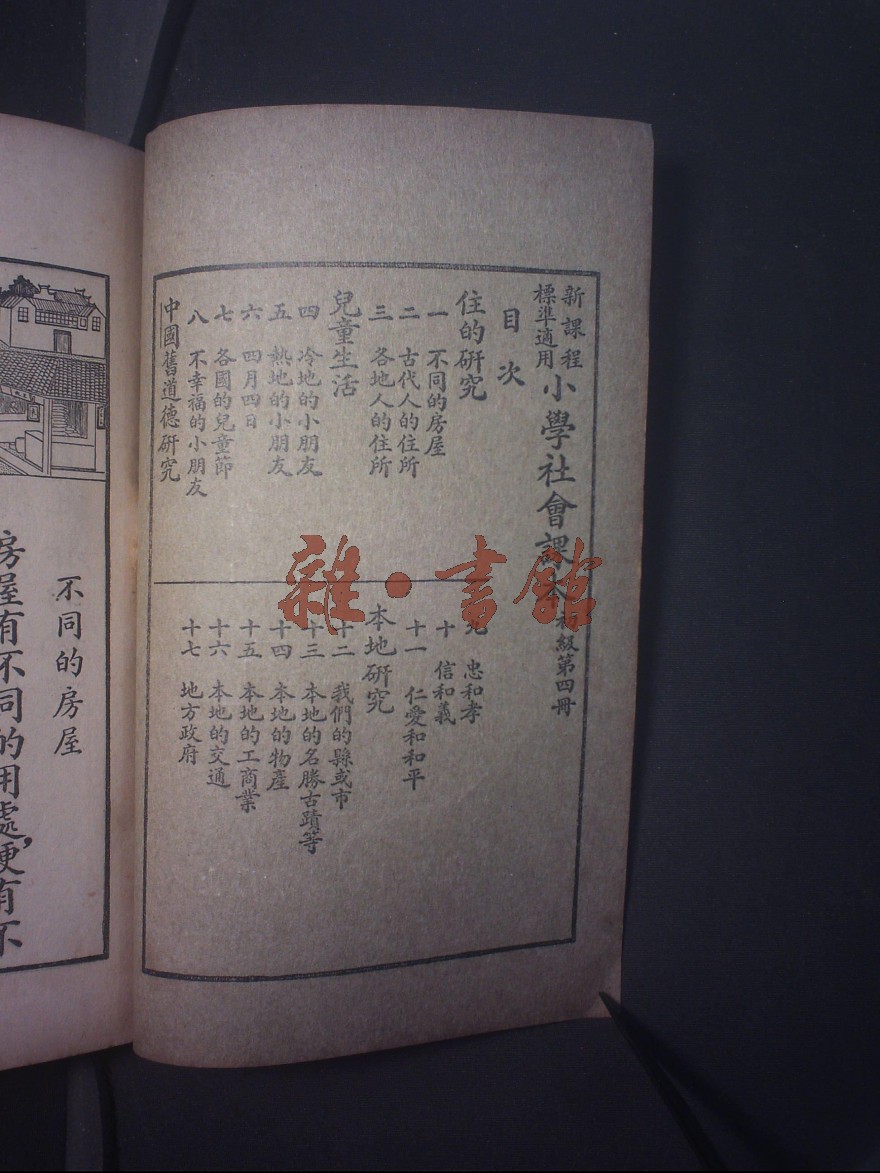 新課程
標準適用
小學社會課本 初級第四冊
目次
住的研究
一 不同的房屋
二 古代人的住所
三 各地人的住所
兒童生活
四 冷地的小朋友
五 熱地的小朋友
六 四月四日
七 各國的兒童節
八 不幸福的小朋友
中國舊道德研究
九 忠和孝
十 信和義
十一 仁愛和和平
本地研究
十二 我們的縣或市
十三 本地的名勝古蹟等
十四 本地的物產
十五 本地的工商業
十六 本地的交通
十七 地方政府
雜·書館
不同的房屋
房屋有不同的用處，便有不